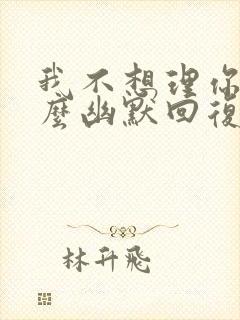 我不想理你
麼幽默回復
林升飛